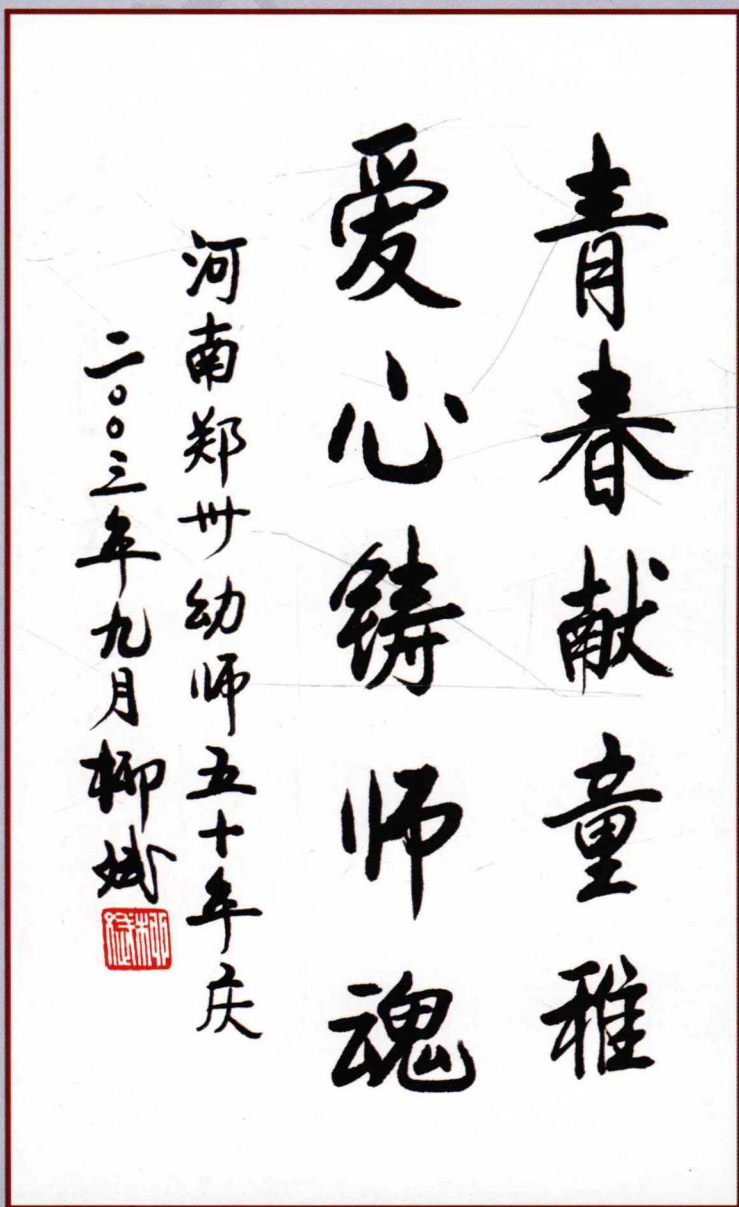 青春献童稚
爱心铸师魂
河南郑州幼师五十年庆
二〇〇三年九月柳斌
柳斌